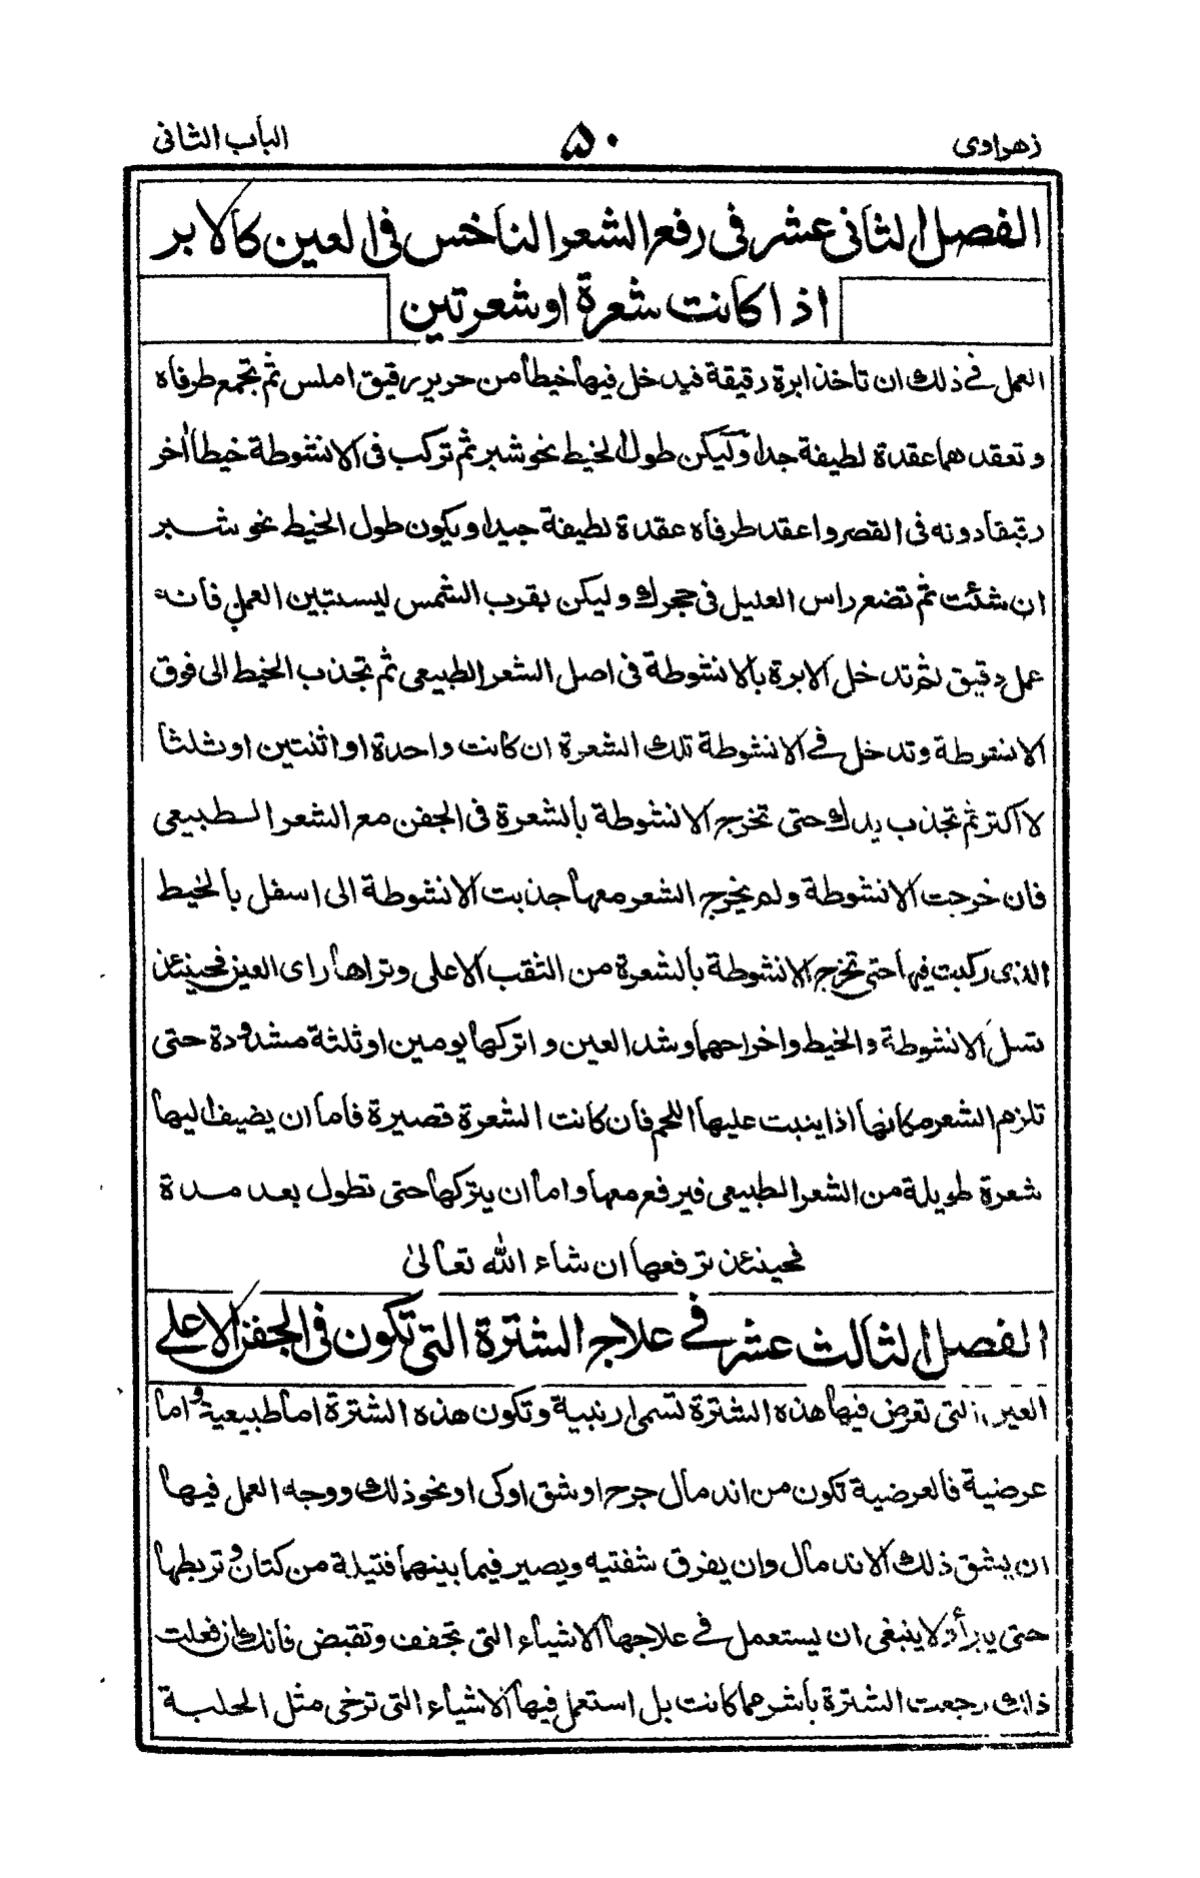 زهراوى ۵۰ الباب الثانى
الفصل الثانى عشر فى رفع الشعر الناخس فى العين كالابر
اذا كانت شعرة او شعرتين
العمل فى ذلك ان تاخذ ابرة دقيقة فيدخل فيها خيطا من حرير رقيق املس ثم تجمع طرفاه
و تعقدهما عقدة لطيفة جدا وليكن طول الخيط نحو شبر ثم تركب فى الانشوطة خيطا اٰخر
رقيقا دونه فى القصر واعقد طرفاه عقدة لطيفة جيدا ويكون طول الخيط نحو شبر
ان شئت ثم تضع راس العليل فى حجرك وليكن بقرب الشمس ليستبين العمل فانه
عمل دقيق ثم تدخل الابرة بالانشوطة فى اصل الشعر الطبيعى ثم تجذب الخيط الى فوق
الانشوطة وتدخل فى الانشوطة تلك الشعرة ان كانت واحدة او اثنتين او ثلثا
لا اكثر ثم تجذب يدك حتى تخرج الانشوطة بالشعرة فى الجفن مع الشعر الطبيعى
فان خرجت الانشوطة ولم يخرج الشعر معها جذبت الانشوطة الى اسفل بالخيط
الذى ركبت فيها حتى تخرج الانشوطة بالشعرة من الثقب الاعلى وتراها راى العين فحينئذ
تسل الانشوطة والخيط واخراحهما وشد العين واتركها يومين او ثلثة مشدودة حتى
تلزم الشعر مكانها اذا ينبت عليها اللحم فان كانت الشعرة قصيرة فاما ان يضيف اليها
شعرة طويلة من الشعر الطبيعى فيرفع معها واما ان يتركها حتى تطول بعد مدة
فحينئذ ترفعها ان شاء الله تعالىٰ
الفصل الثالث عشر فى علاج الشترة التى تكون فى الجفن الاعلى
العين التى تعرض فيها هذه الشترة تسمى ارنبية وتكون هذه الشترة اما طبيعية و اما
عرضية فالعرضية تكون من اندمال جرح او شق او كى او نحو ذلك ووجه العمل فيها
ان يشق ذلك الاندمال وان يفرق شفتيه ويصير فيما بينهما فتيلة من كتان و تربطها
حتى يبرأ ولا ينبغى ان يستعمل فى علاجها الاشياء التى تجفف وتقبض فانك ان فعلت
ذلك رجعت الشترة باشر مما كانت بل استعمل فيها الاشياء التى ترخى مثل الحلبة